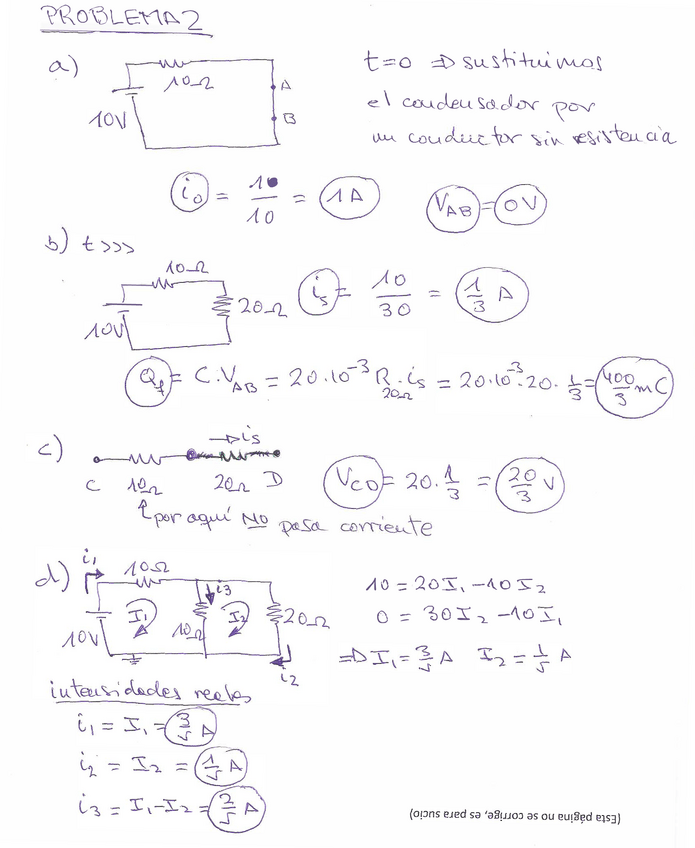 PROBLEMA 2
a)
10Ω
10V
A
B
t=0 ⇒ sustituimos
el condensador por
un conductor sin resistencia
i₀ = 10/10 = 1A
V_AB = 0V
b) t>>>
10Ω
10V
20Ω
i_s = 10/30 = 1/3 A
Q_f = C·V_AB = 20·10⁻³ R_20Ω·i_s = 20·10⁻³·20·1/3 = 400/3 mC
c)
→ i_s
C 10Ω 20Ω D
V_CD = 20·1/3 = 20/3 V
↑ por aquí NO pasa corriente
d)
i₁
10Ω
10V
I₁
10Ω
i₃
I₂
20Ω
i₂
10 = 20I₁ - 10I₂
0 = 30I₂ - 10I₁
⇒ I₁ = 3/5 A I₂ = 1/5 A
intensidades reales
i₁ = I₁ = 3/5 A
i₂ = I₂ = 1/5 A
i₃ = I₁-I₂ = 2/5 A
(Esta página no se corrige, es para sucio)